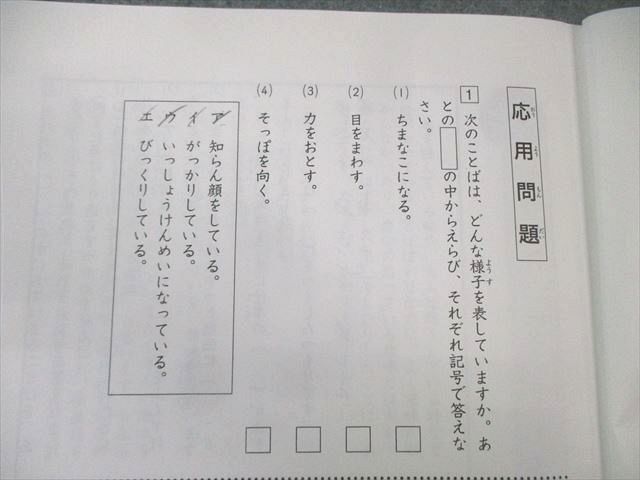 応用問題
1 次のことばは、どんな様子を表していますか。あ
との□の中からえらび、それぞれ記号で答えな
さい。
(1) ちまなこになる。
(2) 目をまわす。
(3) 力をおとす。
(4) そっぽを向く。
ア 知らん顔をしている。
イ がっかりしている。
ウ いっしょうけんめいになっている。
エ びっくりしている。